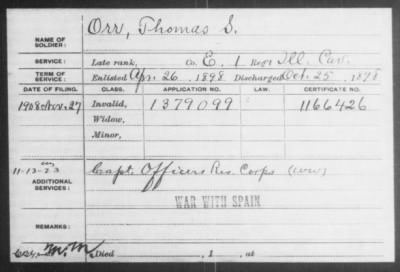 Orr, Thomas S.
NAME OF SOLDIER:
SERVICE: Late rank, Co. E, 1 Reg't Ill. Cav.
TERM OF SERVICE: Enlisted Apr. 26, 1898 Discharged Oct. 25, 1898
DATE OF FILING. CLASS. APPLICATION NO. LAW. CERTIFICATE NO.
1908 Nov. 27 Invalid, 1379099 1166426
Widow,
Minor,
11-13-23
ADDITIONAL SERVICES: Capt. Officers Res. Corps (WW)
WAR WITH SPAIN
REMARKS:
Died , 1 , at